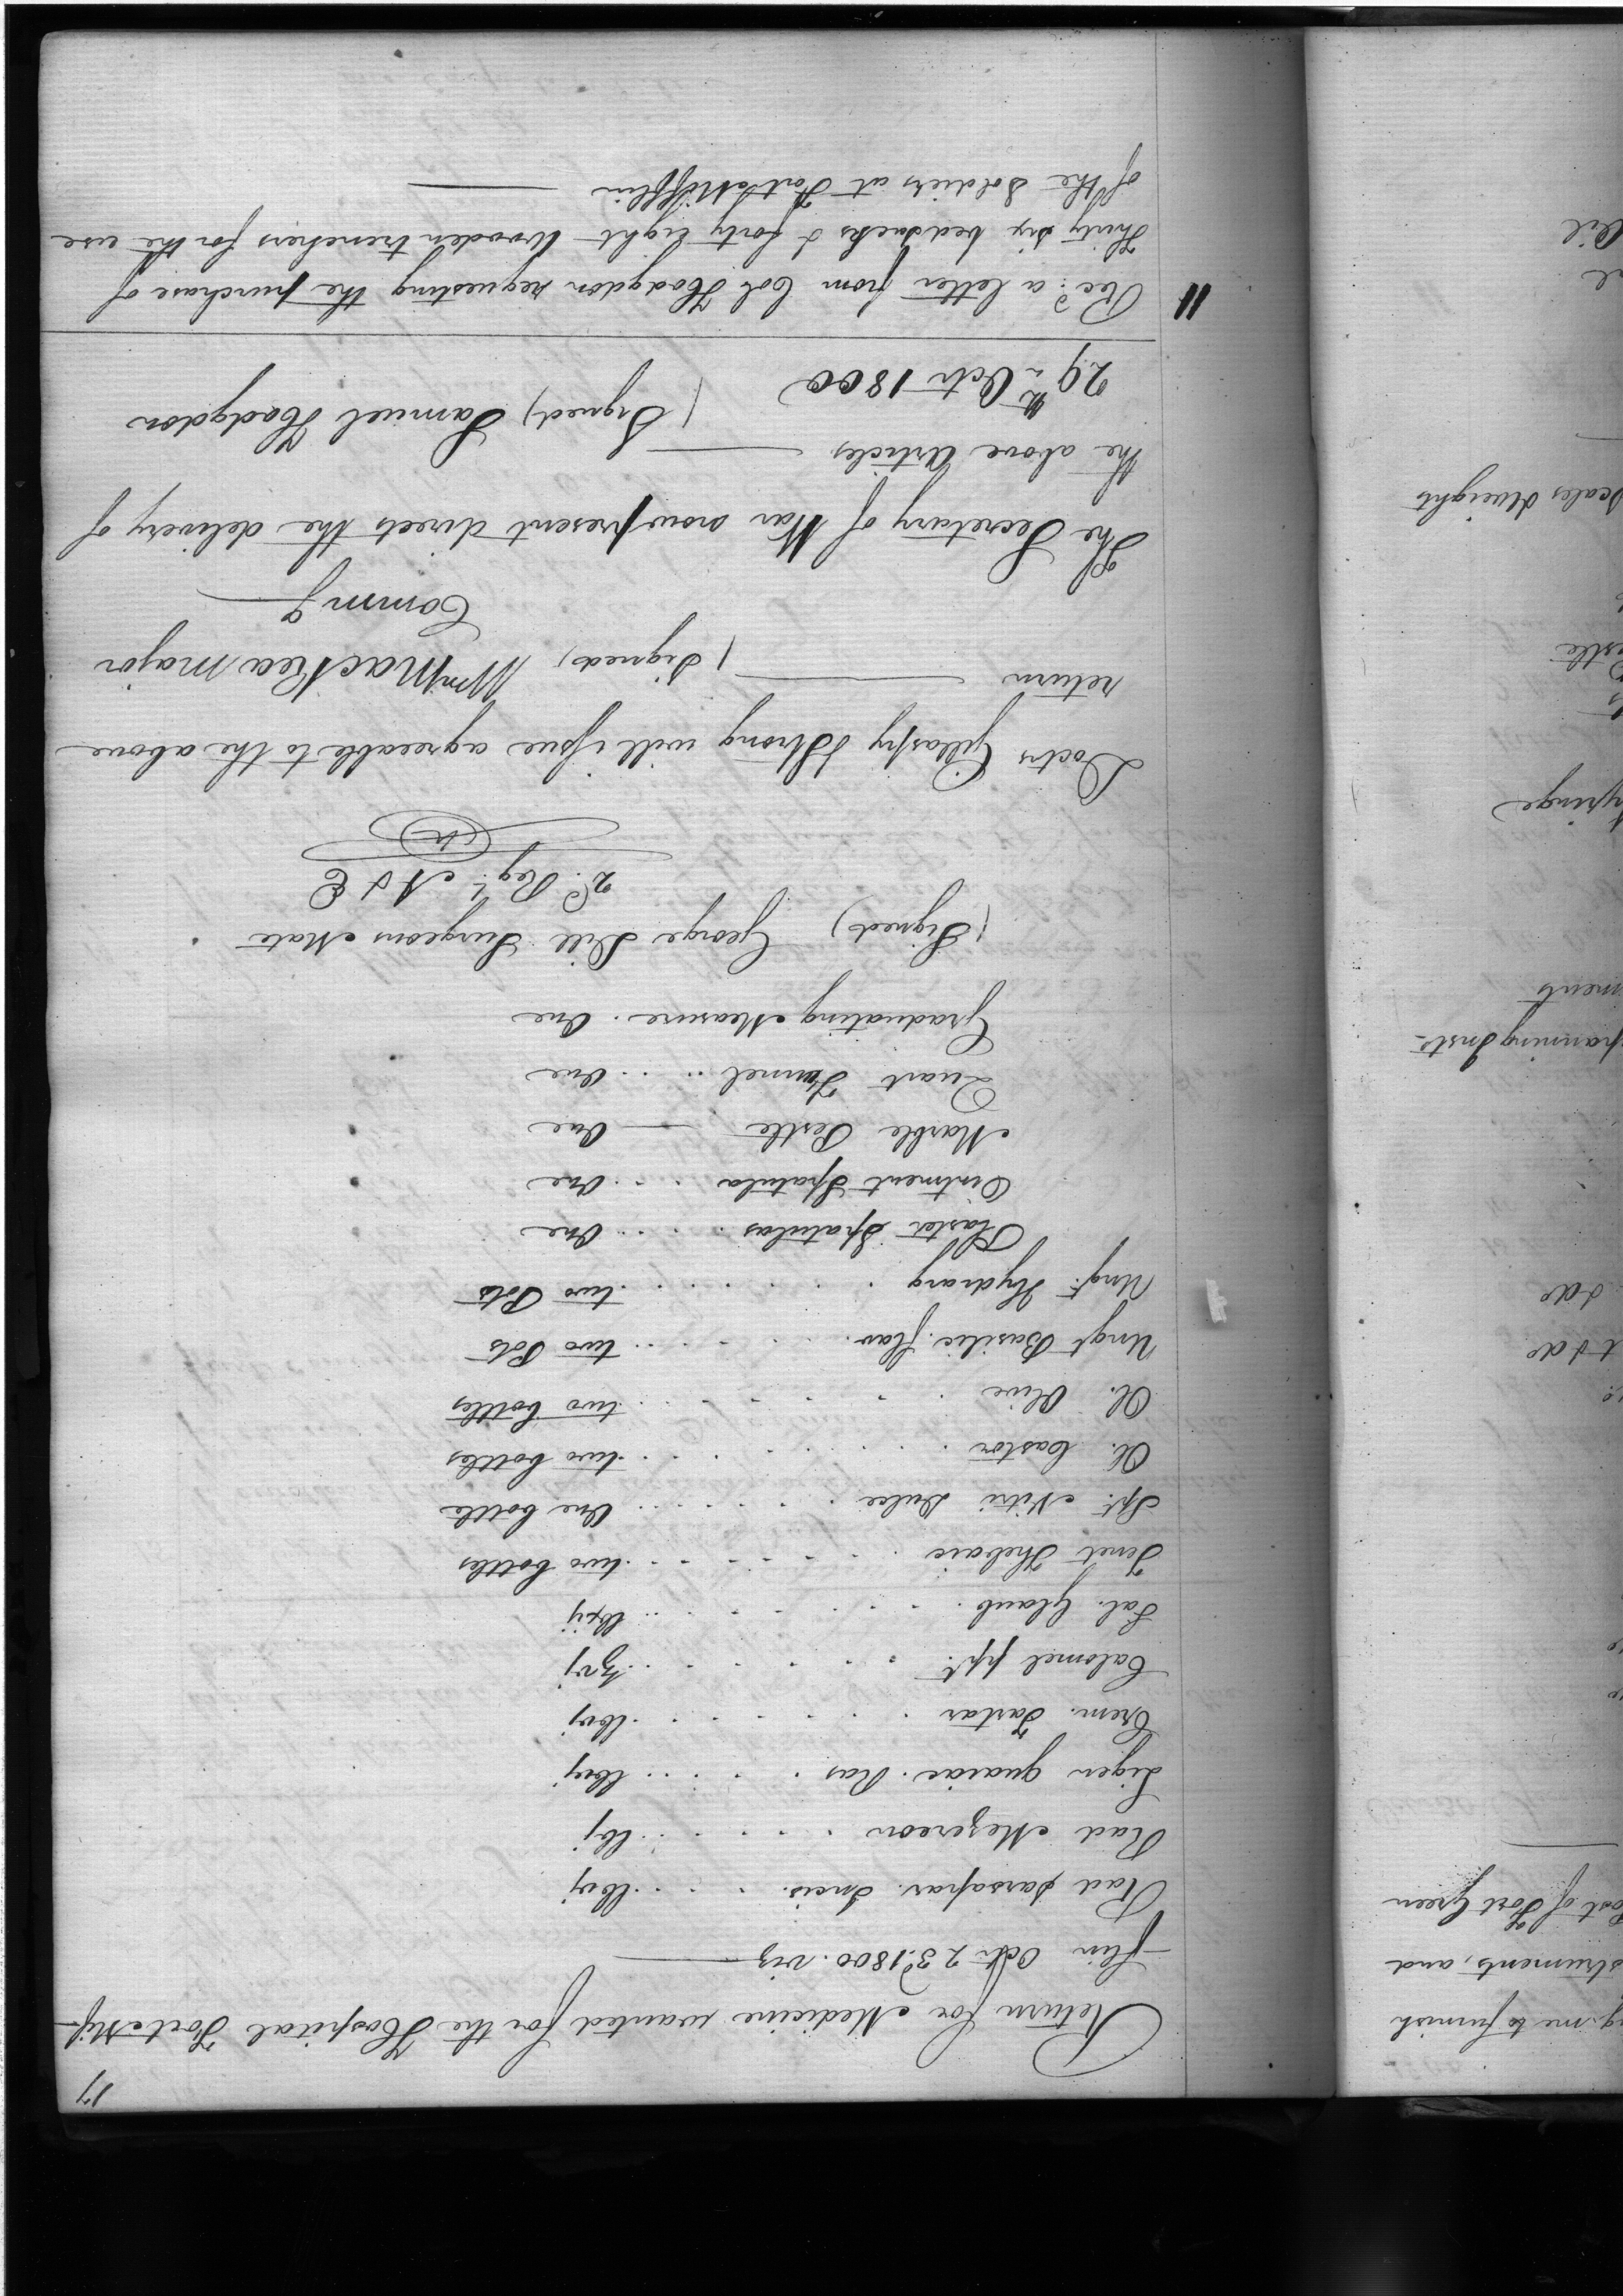 17
Return for Medicine wanted for the Hospital Fort Mif-
-flin Octr. 23d. 1800. viz
Rad Sarsapar. Incis. . . . . lbvj
Rad Mezereon . . . . . lbj
Lign guaiac. Ras . . . . . lbvj
Crem. Tartar . . . . . lbvj
Calomel ppt. . . . . . ℥vj
Sal. Glaub. . . . . .
Tinct Thebaic . . . . . two bottles
Spt. Nitri Dulce . . . . . One bottle
Ol. Castor . . . . . two bottles
Ol. Olive . . . . . two bottles
Ungt Basilic. flav. . . . . . two Pots
Ungt. Hydrarg . . . . . two Pots
Plaster Spatulas . . . . . One
Ointment Spatula . . . . One
Marble Pestle — One
Quart Funnel . . . . One
Graduating Measure. One
(Signed) George Dill Surgeons Mate
2d. Regt. A & E
Doctrs Gillaspy & Strong will issue agreeable to the above
return — (Signed) Wm MacRea Major
Commg
The Secretary of War now present directs the delivery of
the above Articles —
(Signed) Samuel Hodgdon
29th Octr 1800
11 Recd. a letter from Col Hodgdon requesting the purchase of
Thirty six bedsacks & forty eight Wooden trenchers for the use
of the Soldiers at Fort Mifflin —
me to furnish
struments, and
ost of Fort Green
& do
t & do
panning Insts
ments
yringe
estle
Scales & weights
Oil